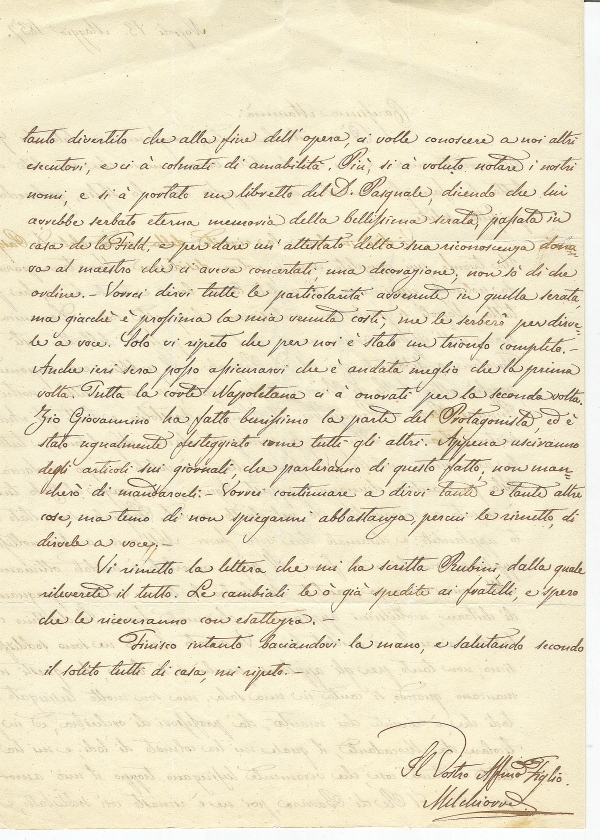 tanto divertito che alla fine dell'opera, ci volle conoscere a noi altri
esecutori, e ci à colmati di amabilità. Più, si à voluto notare i nostri
nomi, e si à portato un libretto del D. Pasquale, dicendo che lui
avrebbe serbato eterna memoria della bellissima serata passata in
casa de la Field, e per dare un' attestato della sua riconoscenza dona=
va al maestro che ci aveva concertati, una decorazione, non sò di che
ordine. – Vorrei dirvi tutte le particolarità avvenute in quella serata,
ma giacchè è prossima la mia venuta costì, me le serberò per dirve=
le a voce. Solo vi ripeto che per noi è stato un trionfo completo. –
Anche ieri sera posso assicurarvi che è andata meglio che la prima
volta. Tutta la corte Napoletana ci à onorati per la seconda volta.
Zio Giovannino ha fatto benissimo la parte del Protagonista, ed è
stato ugualmente festeggiato come tutti gli altri. Appena usciranno
degli articoli sui giornali che parleranno di questo fatto, non man=
cherò di mandarveli. – Vorrei continuare a dirvi tante e tante altre
cose, ma temo di non spiegarmi abbastanza, perciò le rimetto, di
dirvele a voce. –
Vi rimetto la lettera che mi ha scritta Rubini, dalla quale
rileverete il tutto. Le cambiali le ò già spedite ai fratelli, e spero
che le riceveranno con esattezza. –
Finisco intento baciandovi la mano, e salutando secondo
il solito tutti di casa, mi ripeto. –
Il Vostro Affmo Figlio
Melchiorre